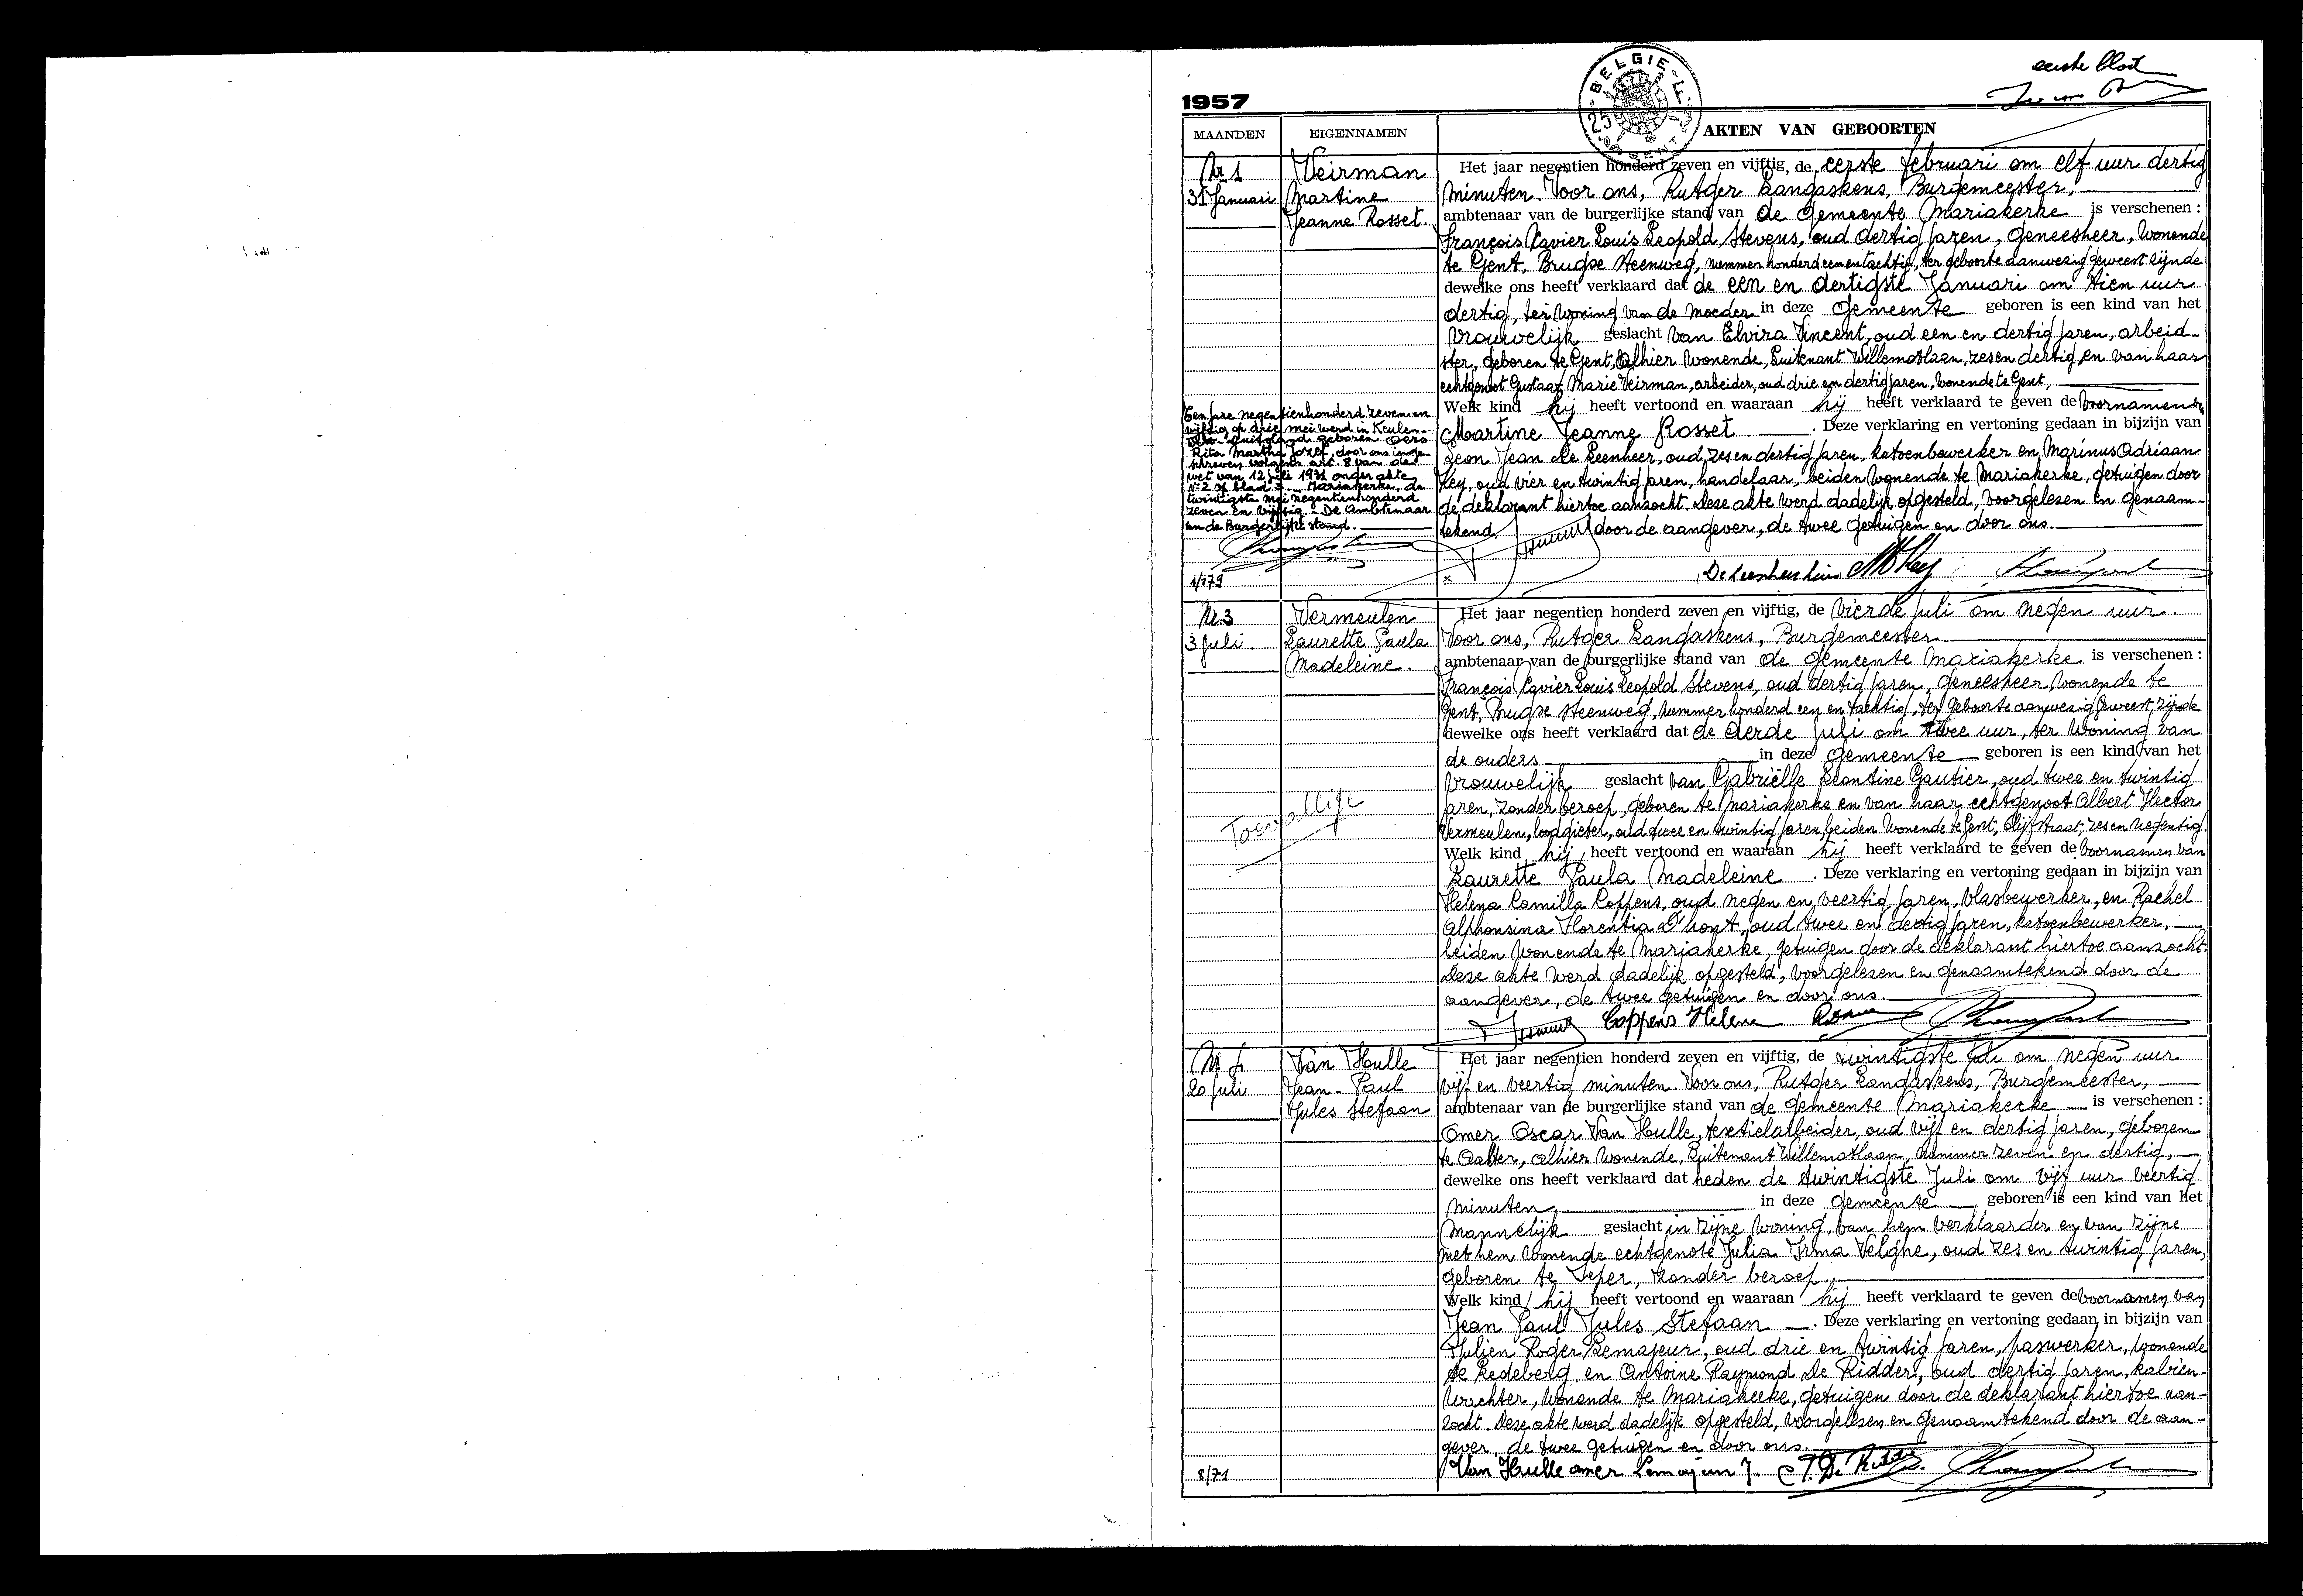 eerste blad
1957
BELGIE
MAANDEN
EIGENNAMEN
AKTEN VAN GEBOORTEN
Nr 1
31 Januari
Veirman
Martine
Jeanne Rosset.
Het jaar negentien honderd zeven en vijftig, de eerste februari om elf uur dertig
minuten. Voor ons, Rutger Langaskens, Burgemeester,
ambtenaar van de burgerlijke stand van de gemeente Mariakerke is verschenen :
François Xavier Louis Leopold Stevens, oud dertig jaren, geneesheer, wonende
te Gent, Brugse steenweg, nummer honderd een en tachtig, ter geboorte aanwezig geweest zijnde
dewelke ons heeft verklaard dat de een en dertigste Januari om tien uur
dertig, ter woning van de moeder in deze gemeente geboren is een kind van het
vrouwelijk geslacht van Elvira Vincent, oud een en dertig jaren, arbeid-
ster, geboren te Gent, alhier wonende, Luitenant Willemotlaan, zes en dertig en van haar
echtgenoot Gustaaf Marie Veirman, arbeider, oud drie en dertig jaren, wonende te Gent,
Welk kind hij heeft vertoond en waaraan hij heeft verklaard te geven de voornamen van
Martine Jeanne Rosset. Deze verklaring en vertoning gedaan in bijzijn van
Leon Jean De Leenheer, oud zes en dertig jaren, katoenbewerker en Marinus Adriaan
Key, oud vier en twintig jaren, handelaar, beiden wonende te Mariakerke, getuigen door
de deklarant hiertoe aanzocht. Deze akte werd dadelijk opgesteld, voorgelezen en genaam-
tekend door de aangever, de twee getuigen en door ons.
Ten jare negentienhonderd zeven en
vijftig op drie mei werd in Keulen-
Duitsland geboren
Rita Martha Jozef, door ons inge-
schreven volgens art. 8 van de
wet van 12 juli 1931 onder akte
Nr 2 op blad 3. Mariakerke, de
twintigste mei negentienhonderd
zeven en vijftig. De Ambtenaar
van de Burgerlijke stand.
1/179
x
De Leenheer MA Key
Nr 3
3 Juli.
Vermeulen
Laurette Paula
Madeleine.
Het jaar negentien honderd zeven en vijftig, de vierde juli om negen uur.
Voor ons, Rutger Langaskens, Burgemeester
ambtenaar van de burgerlijke stand van de gemeente Mariakerke is verschenen :
François Xavier Louis Leopold Stevens, oud dertig jaren, geneesheer, wonende te
Gent, Brugse steenweg, nummer honderd een en tachtig, ter geboorte aanwezig geweest zijnde
dewelke ons heeft verklaard dat de derde juli om twee uur, ter woning van
de ouders in deze gemeente geboren is een kind van het
vrouwelijk geslacht van Gabriëlle Leontine Gautier, oud twee en twintig
jaren, zonder beroep, geboren te Mariakerke en van haar echtgenoot Albert Hector
Vermeulen, loodgieter, oud twee en twintig jaren, beiden wonende te Gent, Olijfstraat, zes en negentig.
Welk kind hij heeft vertoond en waaraan hij heeft verklaard te geven de voornamen van
Laurette Paula Madeleine. Deze verklaring en vertoning gedaan in bijzijn van
Helena Camilla Coppens, oud negen en veertig jaren, vlasbewerker, en Rachel
Alphonsina Florentia D'hont, oud twee en dertig jaren, katoenbewerker,
beiden wonende te Mariakerke, getuigen door de deklarant hiertoe aanzocht.
Deze akte werd dadelijk opgesteld, voorgelezen en genaamtekend door de
aangever, de twee getuigen en door ons.
Toevallige
Coppens Helena
Nr 4
20 Juli
Van Hulle
Jean-Paul
Jules Stefaan
Het jaar negentien honderd zeven en vijftig, de twintigste juli om negen uur
vijf en veertig minuten. Voor ons, Rutger Langaskens, Burgemeester,
ambtenaar van de burgerlijke stand van de gemeente Mariakerke is verschenen :
Omer Oscar Van Hulle, textielarbeider, oud vijf en dertig jaren, geboren
te Aalter, alhier wonende, Luitenant Willemotlaan, nummer zeven en dertig,
dewelke ons heeft verklaard dat heden de twintigste Juli om vijf uur veertig
minuten, in deze gemeente geboren is een kind van het
mannelijk geslacht in zijne woning, van hem verklaarder en van zijne
met hem wonende echtgenote Julia Irma Velghe, oud zes en twintig jaren,
geboren te Ieper, zonder beroep,
Welk kind hij heeft vertoond en waaraan hij heeft verklaard te geven de voornamen van
Jean Paul Jules Stefaan. Deze verklaring en vertoning gedaan in bijzijn van
Julien Roger Lemajeur, oud drie en twintig jaren, paswerker, wonende
te Ledeberg, en Antoine Raymond De Ridder, oud dertig jaren, kabien-
wachter, wonende te Mariakerke, getuigen door de deklarant hiertoe aan-
zocht. Deze akte werd dadelijk opgesteld, voorgelezen en genaamtekend door de aan-
gever, de twee getuigen en door ons.
8/71
Van Hulle omer Lemajeur J. De Ridder